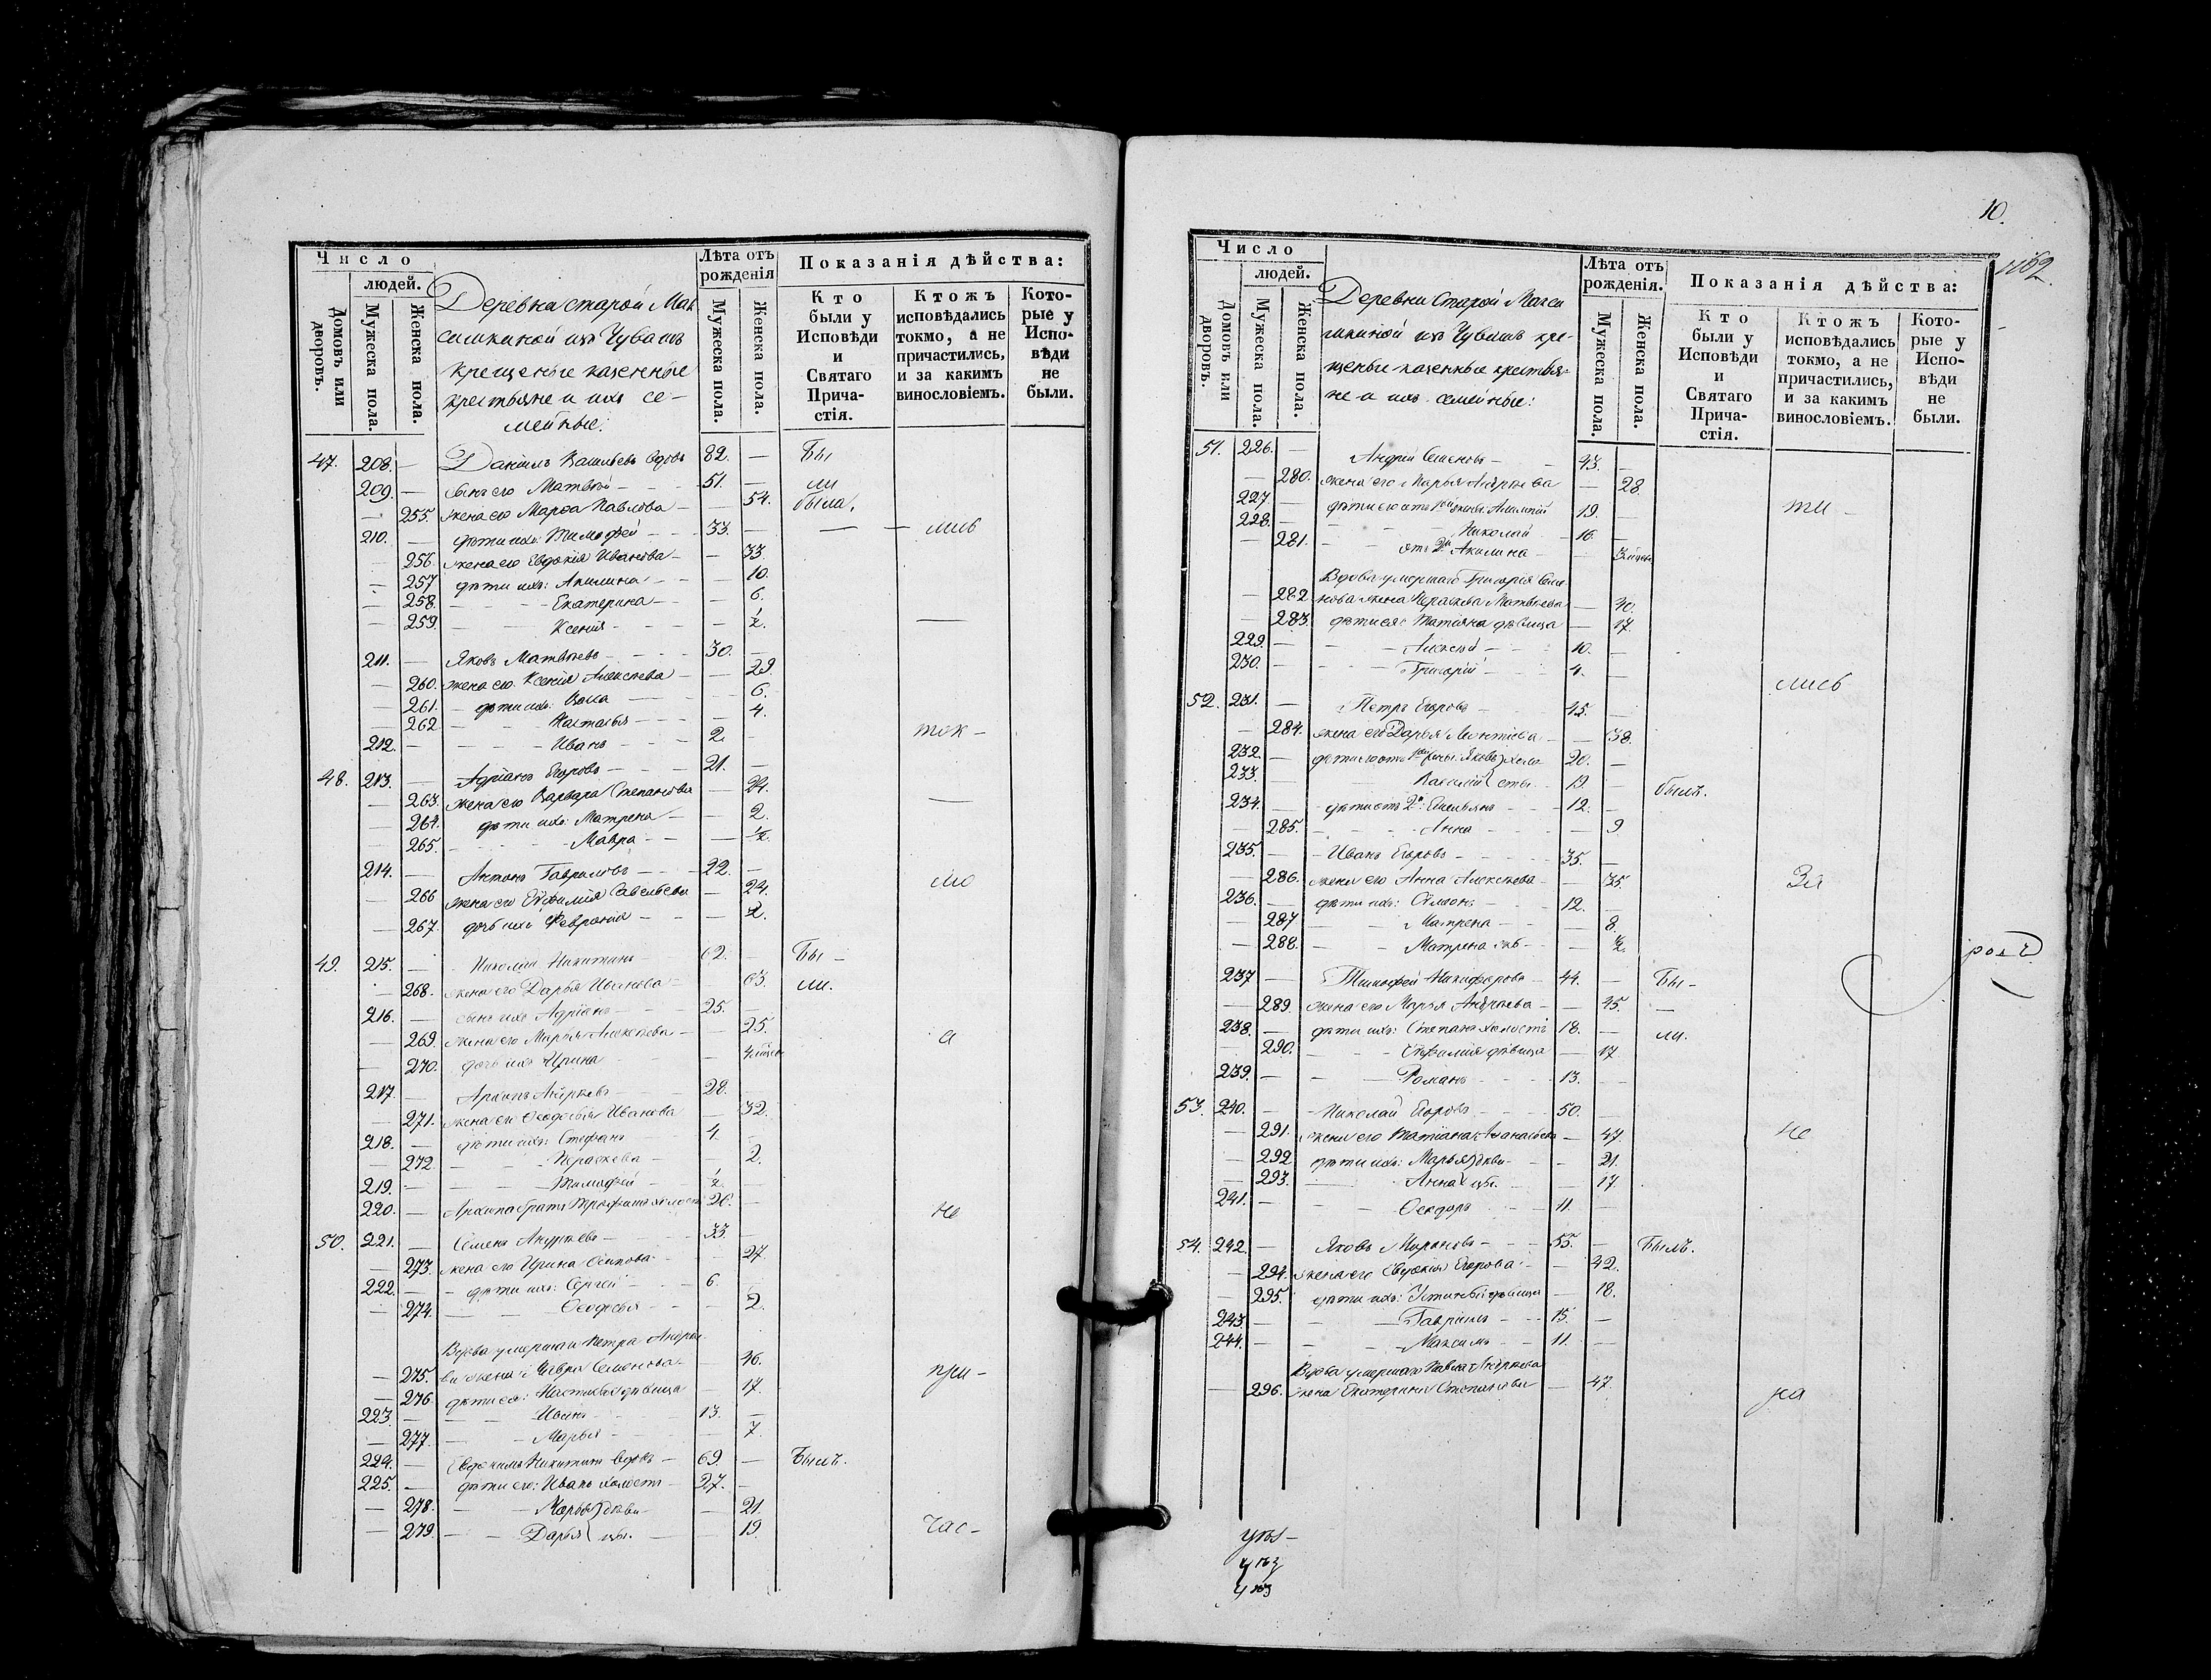 Число
людей.
Домовъ или дворовъ.
Мужеска пола.
Женска пола.
Деревна старой Мак
сишкиной изъ Чувашъ
крещеные казенные
крестьяне и ихъ се-
мейные:
Лѣта отъ рожденія
Мужеска пола.
Женска пола.
Показанія дѣйства:
Кто были у Исповѣди и Святаго Прича-стія.
Ктожъ исповѣдались токмо, а не причастились, и за какимъ винословіемъ.
Кото-рые у Испо-вѣди не были.
47. 208. — Даніилъ Васильевъ вдовъ 82. — Бы
209. — сынъ его Матвѣй 51. — ли
— 255. жена его Марѳа Павлова — 54. была.
210. — дѣти ихъ: Тимофей 33. — — — лись
— 256. жена его Евдокія Иванова — 33.
— 257 дѣти ихъ: Акилина — 10.
— 258. Екатерина — 6.
— 259. Ксенія — ½.
211. — Яковъ Матвѣевъ 30. —
— 260. жена его Ксенія Алексѣева — 29.
— 261. дѣти ихъ: — 6.
— 262 Настасья — 4.
212. — Иванъ 2. — ток-
48. 213. — Адріанъ Егоровъ 21. —
— 263. жена его Варвара Степанова — 24.
— 264. дѣти ихъ: Матрена — 2.
— 265. Мавра — ½.
214. — Антонъ Гавриловъ 22. —
— 266 жена его Евфимія Савельева — 24. мо
— 267. дочь ихъ Февронія — ½.
49. 215. — Николай Никитинъ 62. — Бы-
— 268. жена его Дарья Иванова — 63. ли.
216. — сынъ ихъ Адріанъ 25. —
— 269. жена его Марья Алексѣева — 25. а
— 270. дочь ихъ Ирина —
217. — Архипъ Андреевъ 28. —
— 271. жена его Ѳеодосья Иванова — 32.
218. — дѣти ихъ: Стефанъ 4. —
— 272. Параскева — 2.
219. — Тимофей ½. —
220. — Архипа братъ Трофимъ холостъ 26. — не
50. 221. — Семенъ Андреевъ 33. —
— 273. жена его Ирина Осипова — 27
222. — дѣти ихъ: Сергей 6. —
— 274. Ѳеодосья — 2.
Вдова умершаго Петра Андрее
— 275. ва жена Мавра Семенова — 46. при-
— 276. дѣти ея: Настасья дѣвица — 17.
223. — Иванъ 13. —
— 277. Марья — 7.
224. — Евдокимъ Никитинъ вдовъ 69. — Былъ.
225. — дѣти его: Иванъ холостъ 27. —
— 278. Марья дѣви — 21.
— 279. Дарья цы. — 19. час-
10.
1162.
Число
людей.
Домовъ или дворовъ.
Мужеска пола.
Женска пола.
Деревни Старой Макси
шкиной изъ Чувашъ кре-
щеные казенные крестья-
не и ихъ семейные:
Лѣта отъ рожденія.
Мужеска пола.
Женска пола.
Показанія дѣйства:
Кто были у Исповѣди и Святаго Прича-стія.
Ктожъ исповѣдались токмо, а не причастились, и за какимъ винословіемъ.
Кото-рые у Испо-вѣди не были.
51. 226. — Андрей Семеновъ 43. —
— 280. жена его Марья Андреева — 28.
227. — дѣти его отъ 1ой жены: 19 — ти
228. — Николай 16. —
— 281. отъ 2й Акилина —
Вдова умершаго Григорія Семе
— 282. нова жена Параскева Матвѣева — 40.
— 283. дѣти ея: Татіана дѣвица — 17.
229. — Алексѣй 10. —
230. — Григорій 4. — лись
52. 231. — Петръ Егоровъ 45. —
— 284. жена его Дарья Леонтіева — 38.
232. — дѣти его отъ 1ой жены: Яковъ холо 20. —
233. — Василій сты 19. — былъ.
234. — дѣти отъ 2й: Емельянъ 12. —
— 285. Анна — 9
235. — Иванъ Егоровъ 35. —
— 286. жена его Анна Алексѣева — 35. За
236. — дѣти ихъ: Симеонъ 12. —
— 287 Матрена — 8.
— 288. Матрена — ½.
237 — Тимофей Никифоровъ 44. — Бы-
— 289. жена его Марья Андреева — 45. —
238. — дѣти ихъ: Степанъ холостъ 18. — ли.
— 290. Евфимія дѣвица — 17
239. — Романъ 13. —
53. 240. — Николай Егоровъ 50. —
— 291. жена его Татіана Аѳанасьева — 47. не
— 292. дѣти ихъ: Марья дѣви — 21.
— 293. Анна цы. — 17.
241. — Ѳеодоръ 11. —
54. 242. — Яковъ Мироновъ 55. — Былъ.
— 294. жена его Евдокія Егорова — 42.
— 295. дѣти ихъ: Устинья дѣвица — 18.
243. — Гавріилъ 15. —
244. — Максимъ 11. —
Вдова умершаго Павла Андреева
— 296. жена Екатерина Степанова — 47.